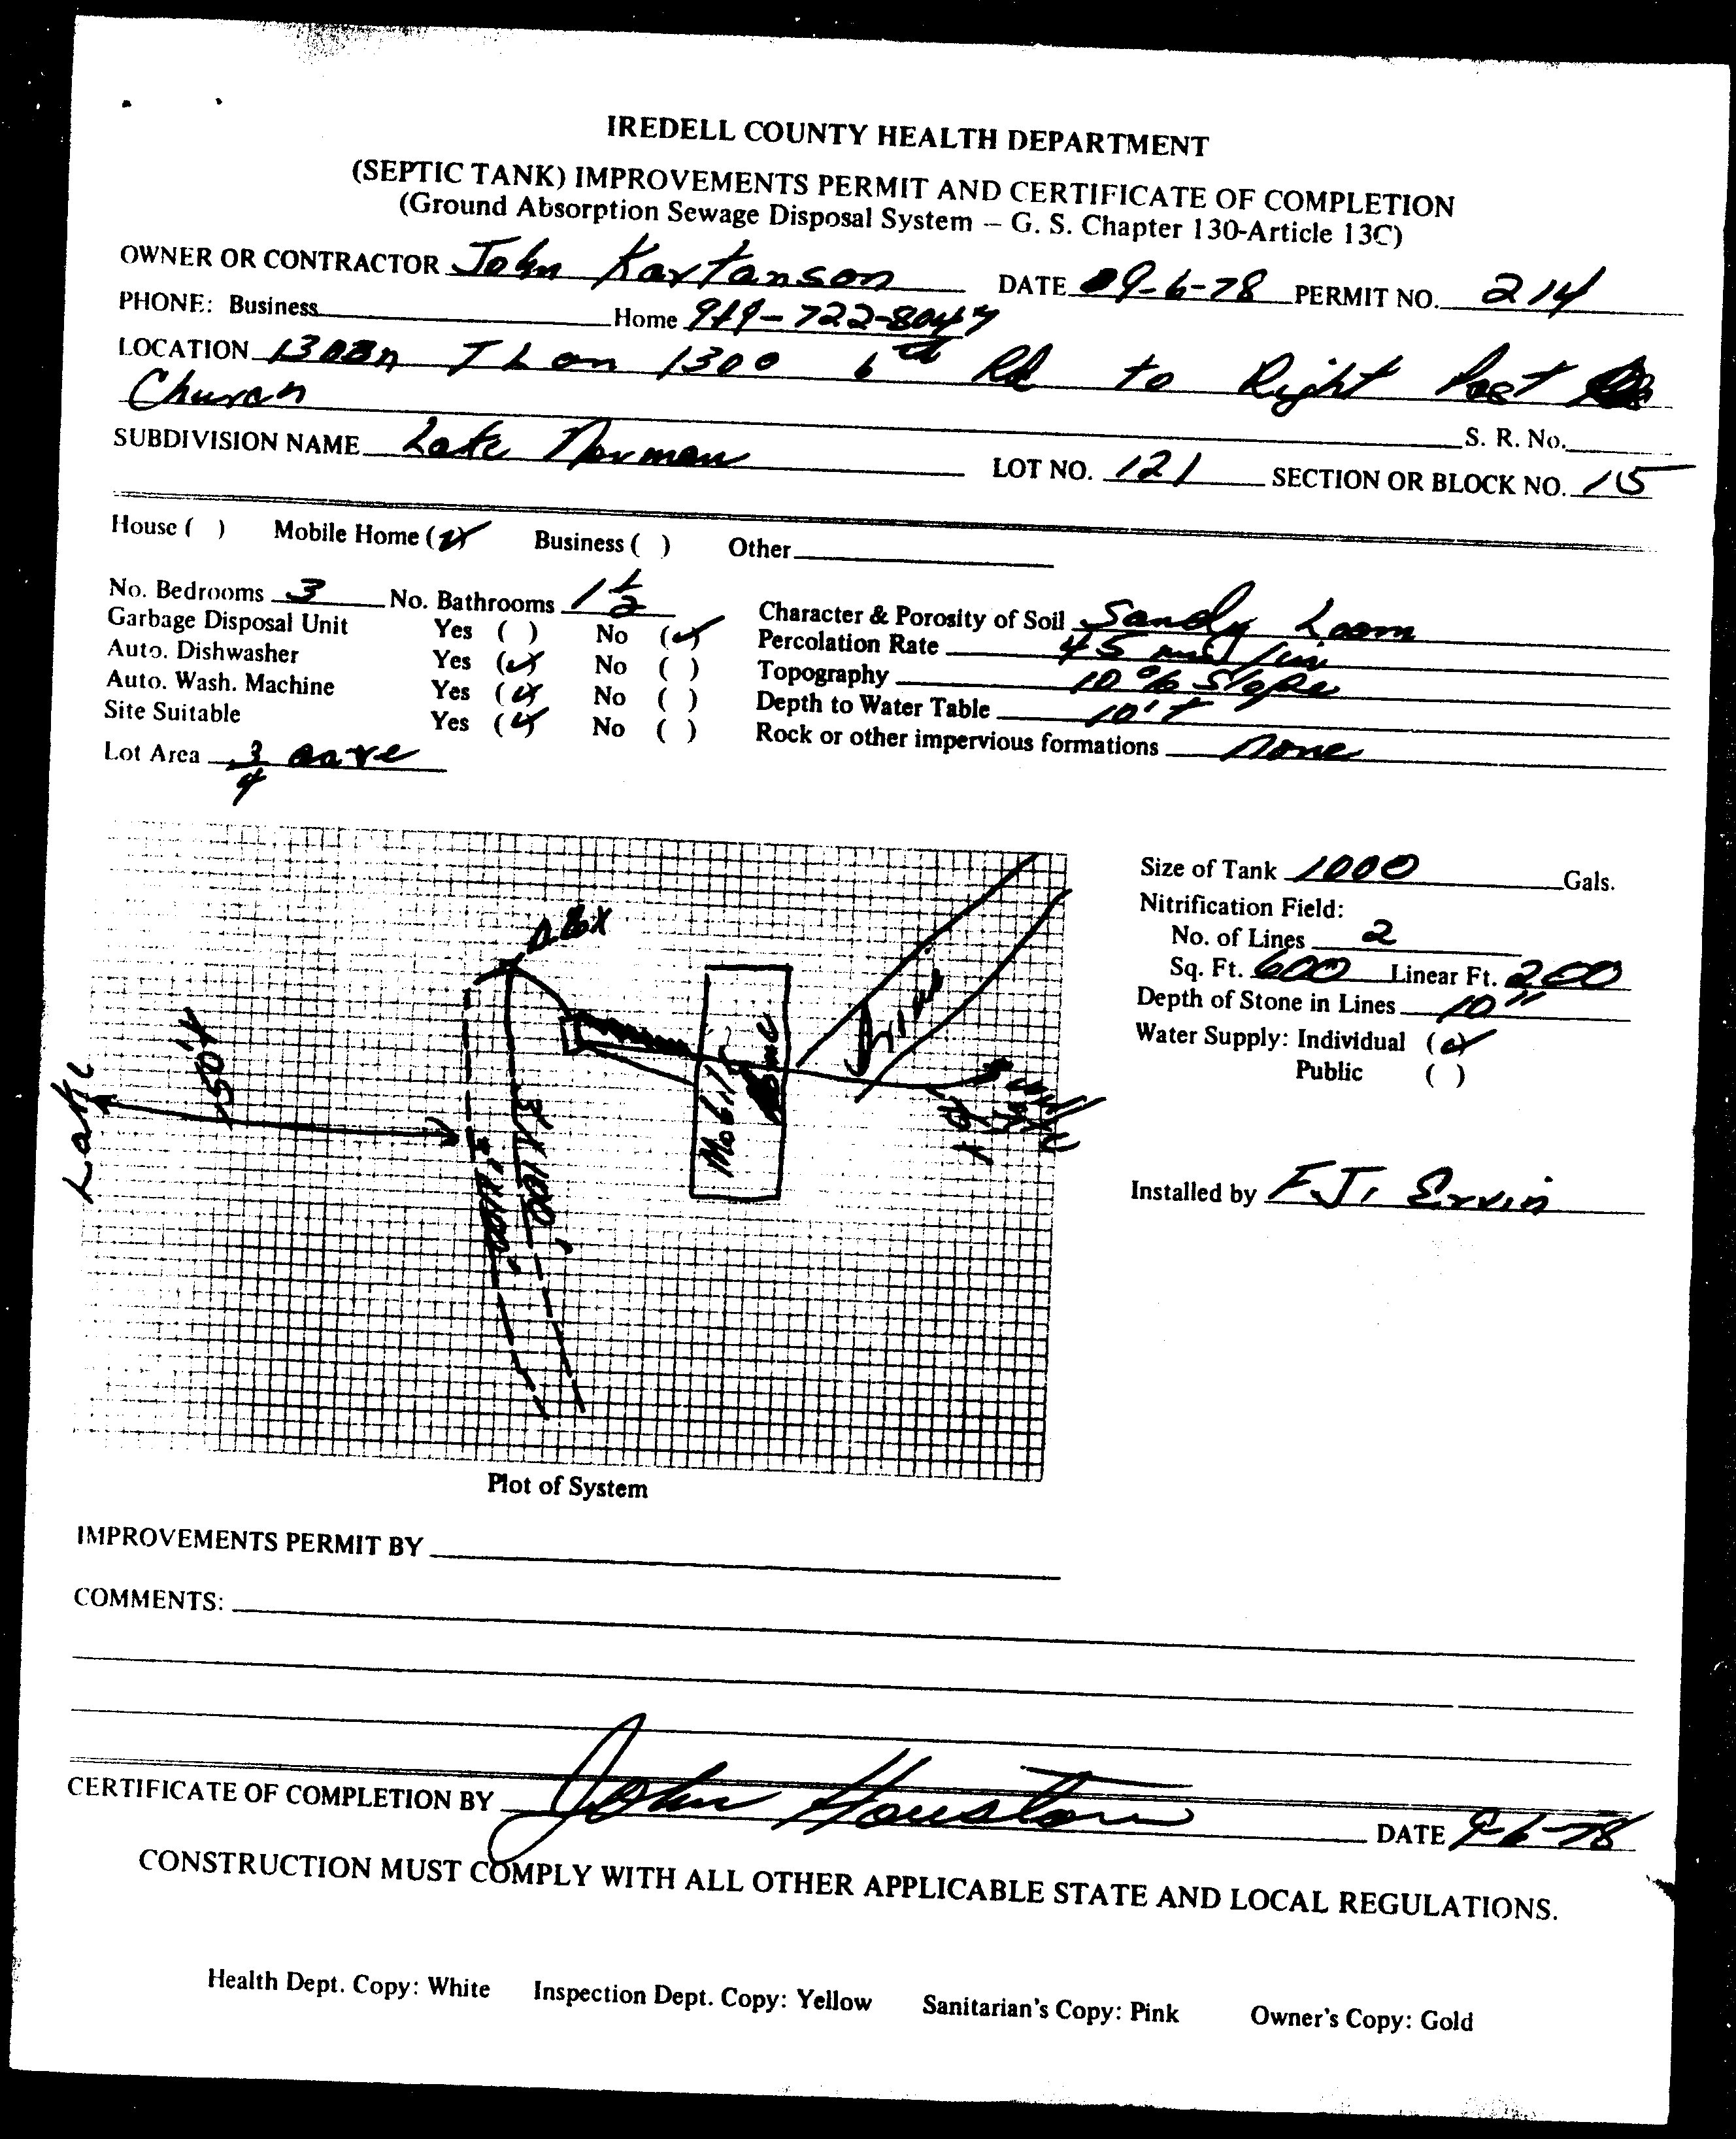 IREDELL COUNTY HEALTH DEPARTMENT
(SEPTIC TANK) IMPROVEMENTS PERMIT AND CERTIFICATE OF COMPLETION
(Ground Absorption Sewage Disposal System – G. S. Chapter 130-Article 13C)
OWNER OR CONTRACTOR John Kartanson DATE 09-6-78 PERMIT NO. 214
PHONE: Business Home 919-722-8047
LOCATION TL on 1300 6th Rd to Right Past
Church
S. R. No.
SUBDIVISION NAME Lake Norman LOT NO. 121 SECTION OR BLOCK NO. 15
House ( ) Mobile Home (✓) Business ( ) Other
No. Bedrooms 3 No. Bathrooms 1 1/2 Character & Porosity of Soil Sandy Loam
Garbage Disposal Unit Yes ( ) No (✓) Percolation Rate 45 min/in
Auto. Dishwasher Yes (✓) No ( ) Topography 10% Slope
Auto. Wash. Machine Yes (✓) No ( ) Depth to Water Table 10'+
Site Suitable Yes (✓) No ( ) Rock or other impervious formations None
Lot Area 3/4 acre
Size of Tank 1000 Gals.
Nitrification Field:
No. of Lines 2
Sq. Ft. 600 Linear Ft. 200
Depth of Stone in Lines 10"
Water Supply: Individual (✓)
Public ( )
Installed by F.J. Ervin
D. Box
Lake
50'+
100'
3'x100'
Mobile Home
Drive
Plot of System
IMPROVEMENTS PERMIT BY
COMMENTS:
CERTIFICATE OF COMPLETION BY John Houston DATE 9-6-78
CONSTRUCTION MUST COMPLY WITH ALL OTHER APPLICABLE STATE AND LOCAL REGULATIONS.
Health Dept. Copy: White Inspection Dept. Copy: Yellow Sanitarian's Copy: Pink Owner's Copy: Gold